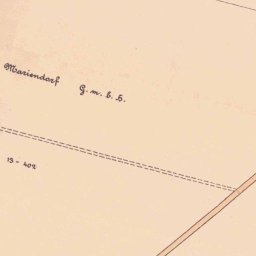 Mariendorf G. m. b. H.
13 - 402